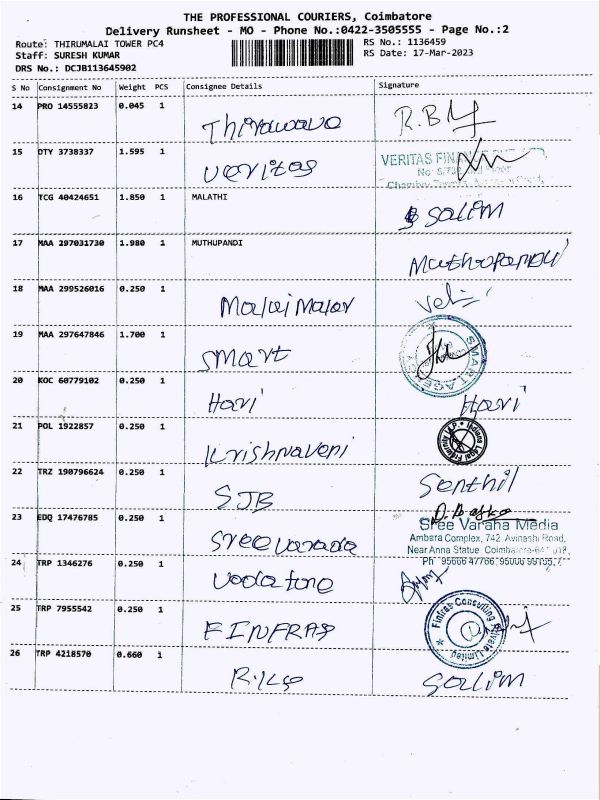 THE PROFESSIONAL COURIERS, Coimbatore
Delivery Runsheet - MO - Phone No.:0422-3505555 - Page No.:2
Route: THIRUMALAI TOWER PC4
RS No.: 1136459
Staff: SURESH KUMAR
RS Date: 17-Mar-2023
DRS No.: DCJB113645902
S No Consignment No Weight PCS Consignee Details Signature
14 PRO 14555823 0.045 1
R.B
15 DTY 3738337 1.595 1 Veritas
VERITAS FIN
16 TCG 40424651 1.850 1 MALATHI
Salim
17 MAA 297031730 1.980 1 MUTHUPANDI
Muthupandi
18 MAA 299526016 0.250 1 Malai Malar
19 MAA 297647846 1.700 1 Smart
20 KOC 60779102 0.250 1 Hari Hari
21 POL 1922857 0.250 1 Krishnaveni
22 TRZ 190796624 0.250 1 SJB Senthil
23 EDQ 17476785 0.250 1
Sree Varaha Media
Ambara Complex, 742, Avinashi Road,
Near Anna Statue, Coimbatore-641 018,
24 TRP 1346276 0.250 1 Vodafone
25 TRP 7955542 0.250 1 FINFRAS
Finfras Consulting Private Limited
26 TRP 4218570 0.660 1
Salim